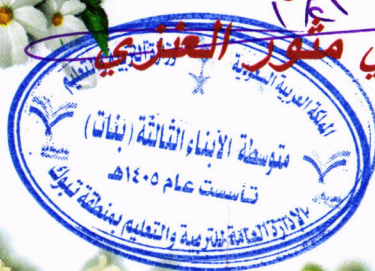 ي مثور العنزي
المملكة العربية السعودية
متوسطة الأبناء الثالثة (بنات)
تأسست عام ١٤٠٥هـ
الإدارة العامة للتربية والتعليم بمنطقة تبوك